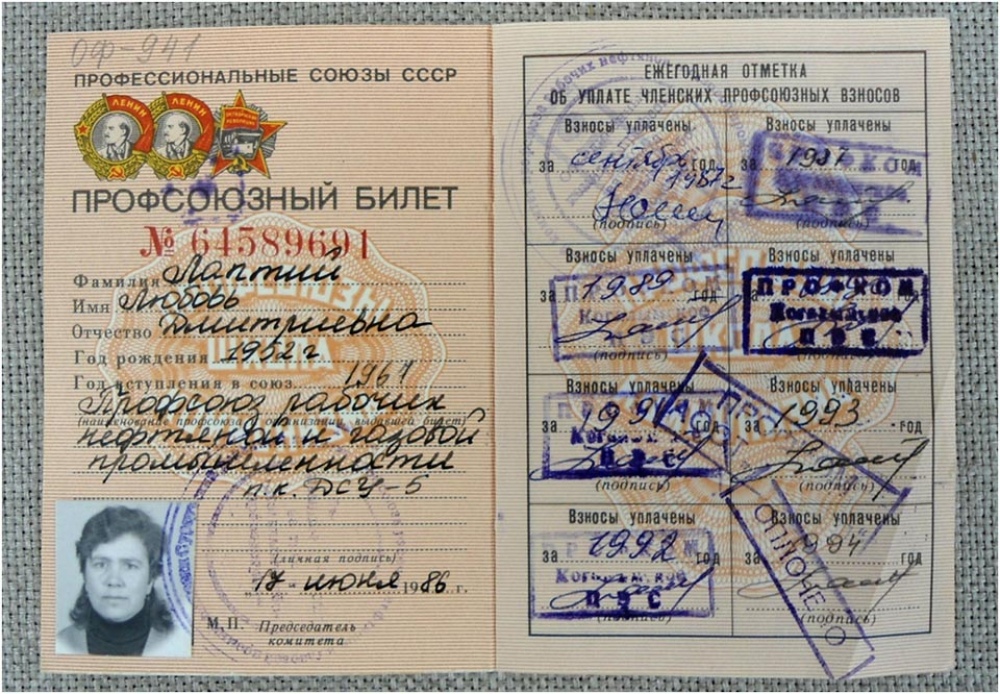 ОФ-941
ПРОФЕССИОНАЛЬНЫЕ СОЮЗЫ СССР
ЛЕНИН ЛЕНИН
ПРОФСОЮЗНЫЙ БИЛЕТ
№ 64589691
Фамилия Лаптий
Имя Любовь
Отчество Дмитриевна
Год рождения 1952 г
Год вступления в союз 1967
Профсоюз рабочих
(наименование профсоюза и организации, выдавшей билет)
нефтяной и газовой
промышленности
п.к. ДСУ-5
(личная подпись)
17 июня 1986 г.
М.П. Председатель
комитета
ЕЖЕГОДНАЯ ОТМЕТКА
ОБ УПЛАТЕ ЧЛЕНСКИХ ПРОФСОЮЗНЫХ ВЗНОСОВ
Взносы уплачены Взносы уплачены
за сентябрь год за 1987 год
1987г
(подпись) (подпись)
Взносы уплачены Взносы уплачены
за 1989 год
ПРОФКОМ
Когалымское
ПРС
(подпись) (подпись)
Взносы уплачены Взносы уплачены
за 1991 за 1993 год
ПРС
(подпись) (подпись)
Взносы уплачены Взносы уплачены
за 1992 год за 1994 год
ПРС
(подпись) (подпись)